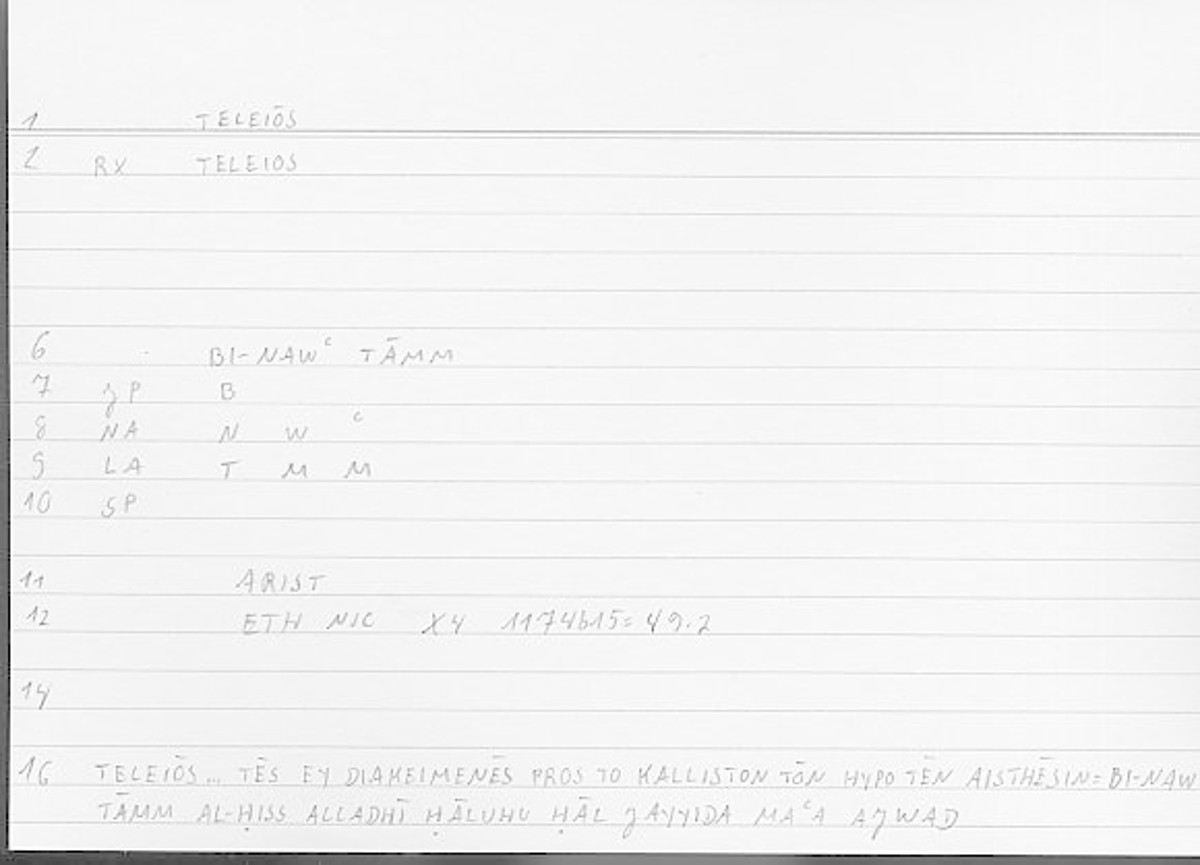 1 TELEIŌS
2 RX TELEIOS
6 BI-NAWᶜ TĀMM
7 ȷP B
8 NA N W ᶜ
9 LA T M M
10 SP
11 ARIST
12 ETH NIC X4 1174b15= 49.2
14
16 TELEIŌS... TĒS EY DIAKEIMENĒS PROS TO KALLISTON TŌN HYPO TĒN AISTHĒSIN= BI-NAW
TĀMM AL-ḤISS ALLADHĪ ḤĀLUHU ḤĀL ȷAYYIDA MAᶜA AȷWAD